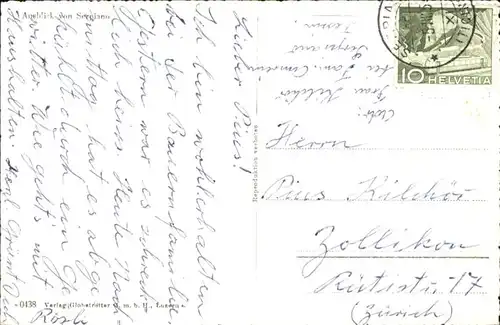 Ausblick von Serpiano
Lieber Pius!
Ich bin wohlbehalten
bei der Bauernfamilie
Gestern war es schreck-
lich heiss. Heute Nach-
mittag hat es abge-
kühlt durch ein Ge-
witter. Wie geht's mit
Haushalten
Rösli
Adr:
Frau Kilchör
Serpiano
Tessin
HELVETIA
10
Herrn
Pius Kilchör
Zollikon
Rütistr 17
(Zürich)
Reproduktion verboten
0438 Verlag Globetrotter G. m. b. H., Luzern